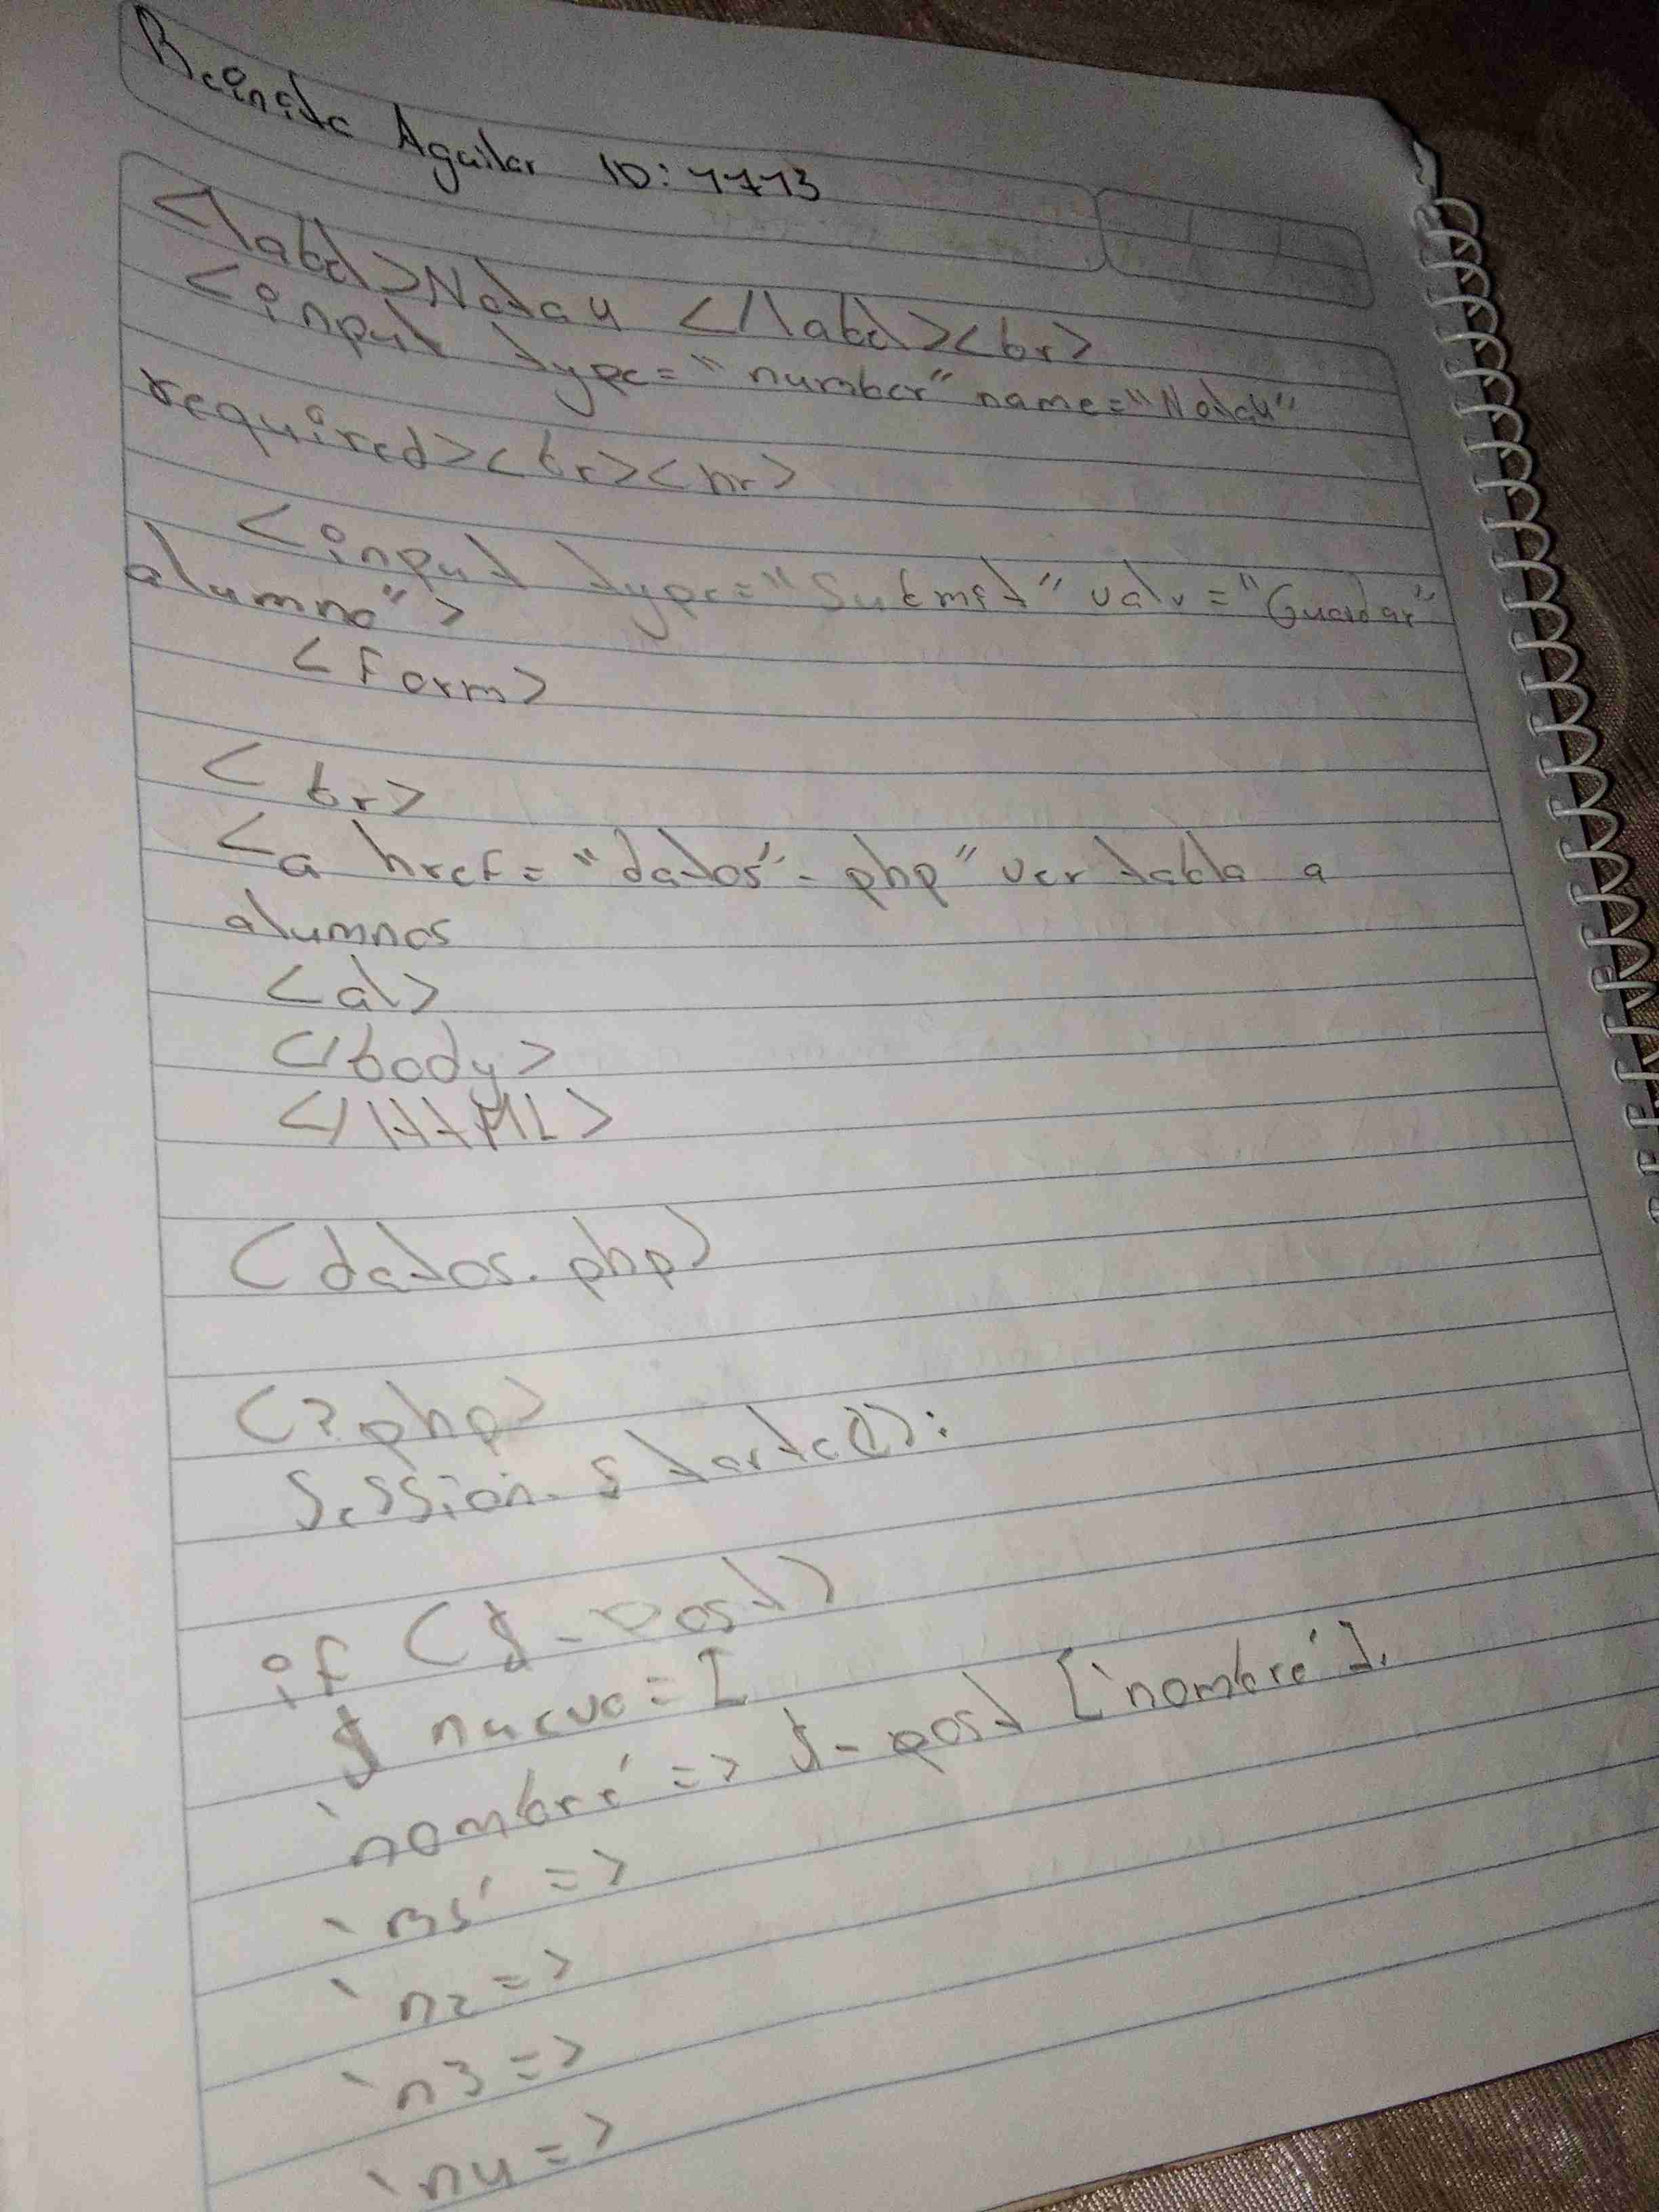 Aguilar ID: 7773
<label>Nota4 </label><br>
<input type="number" name="Nota4"
required><br><hr>
<input type="Submit" valu="Guardar"
alumno">
<form>
<br>
<a href="datos"-php" ver tabla a
alumnos
<a\>
</body>
</HTML>
(datos.php)
(?php>
Session-starte():
if ($-post)
$ nuevo=[
'nombre' => $-post ['nombre'],
'n2=>
'n3=>
'n4=>